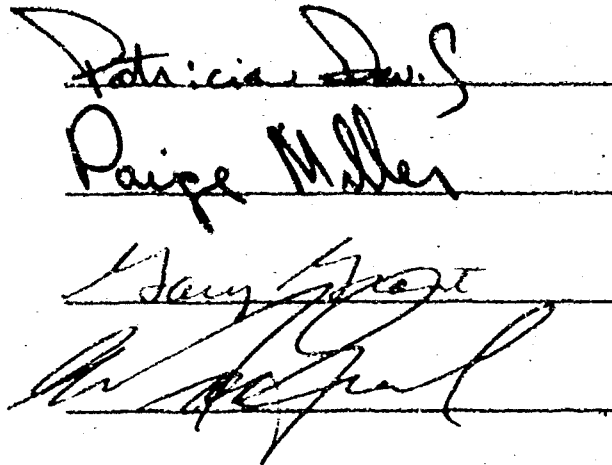 Patricia Davis
Paige Miller
Gary Grant